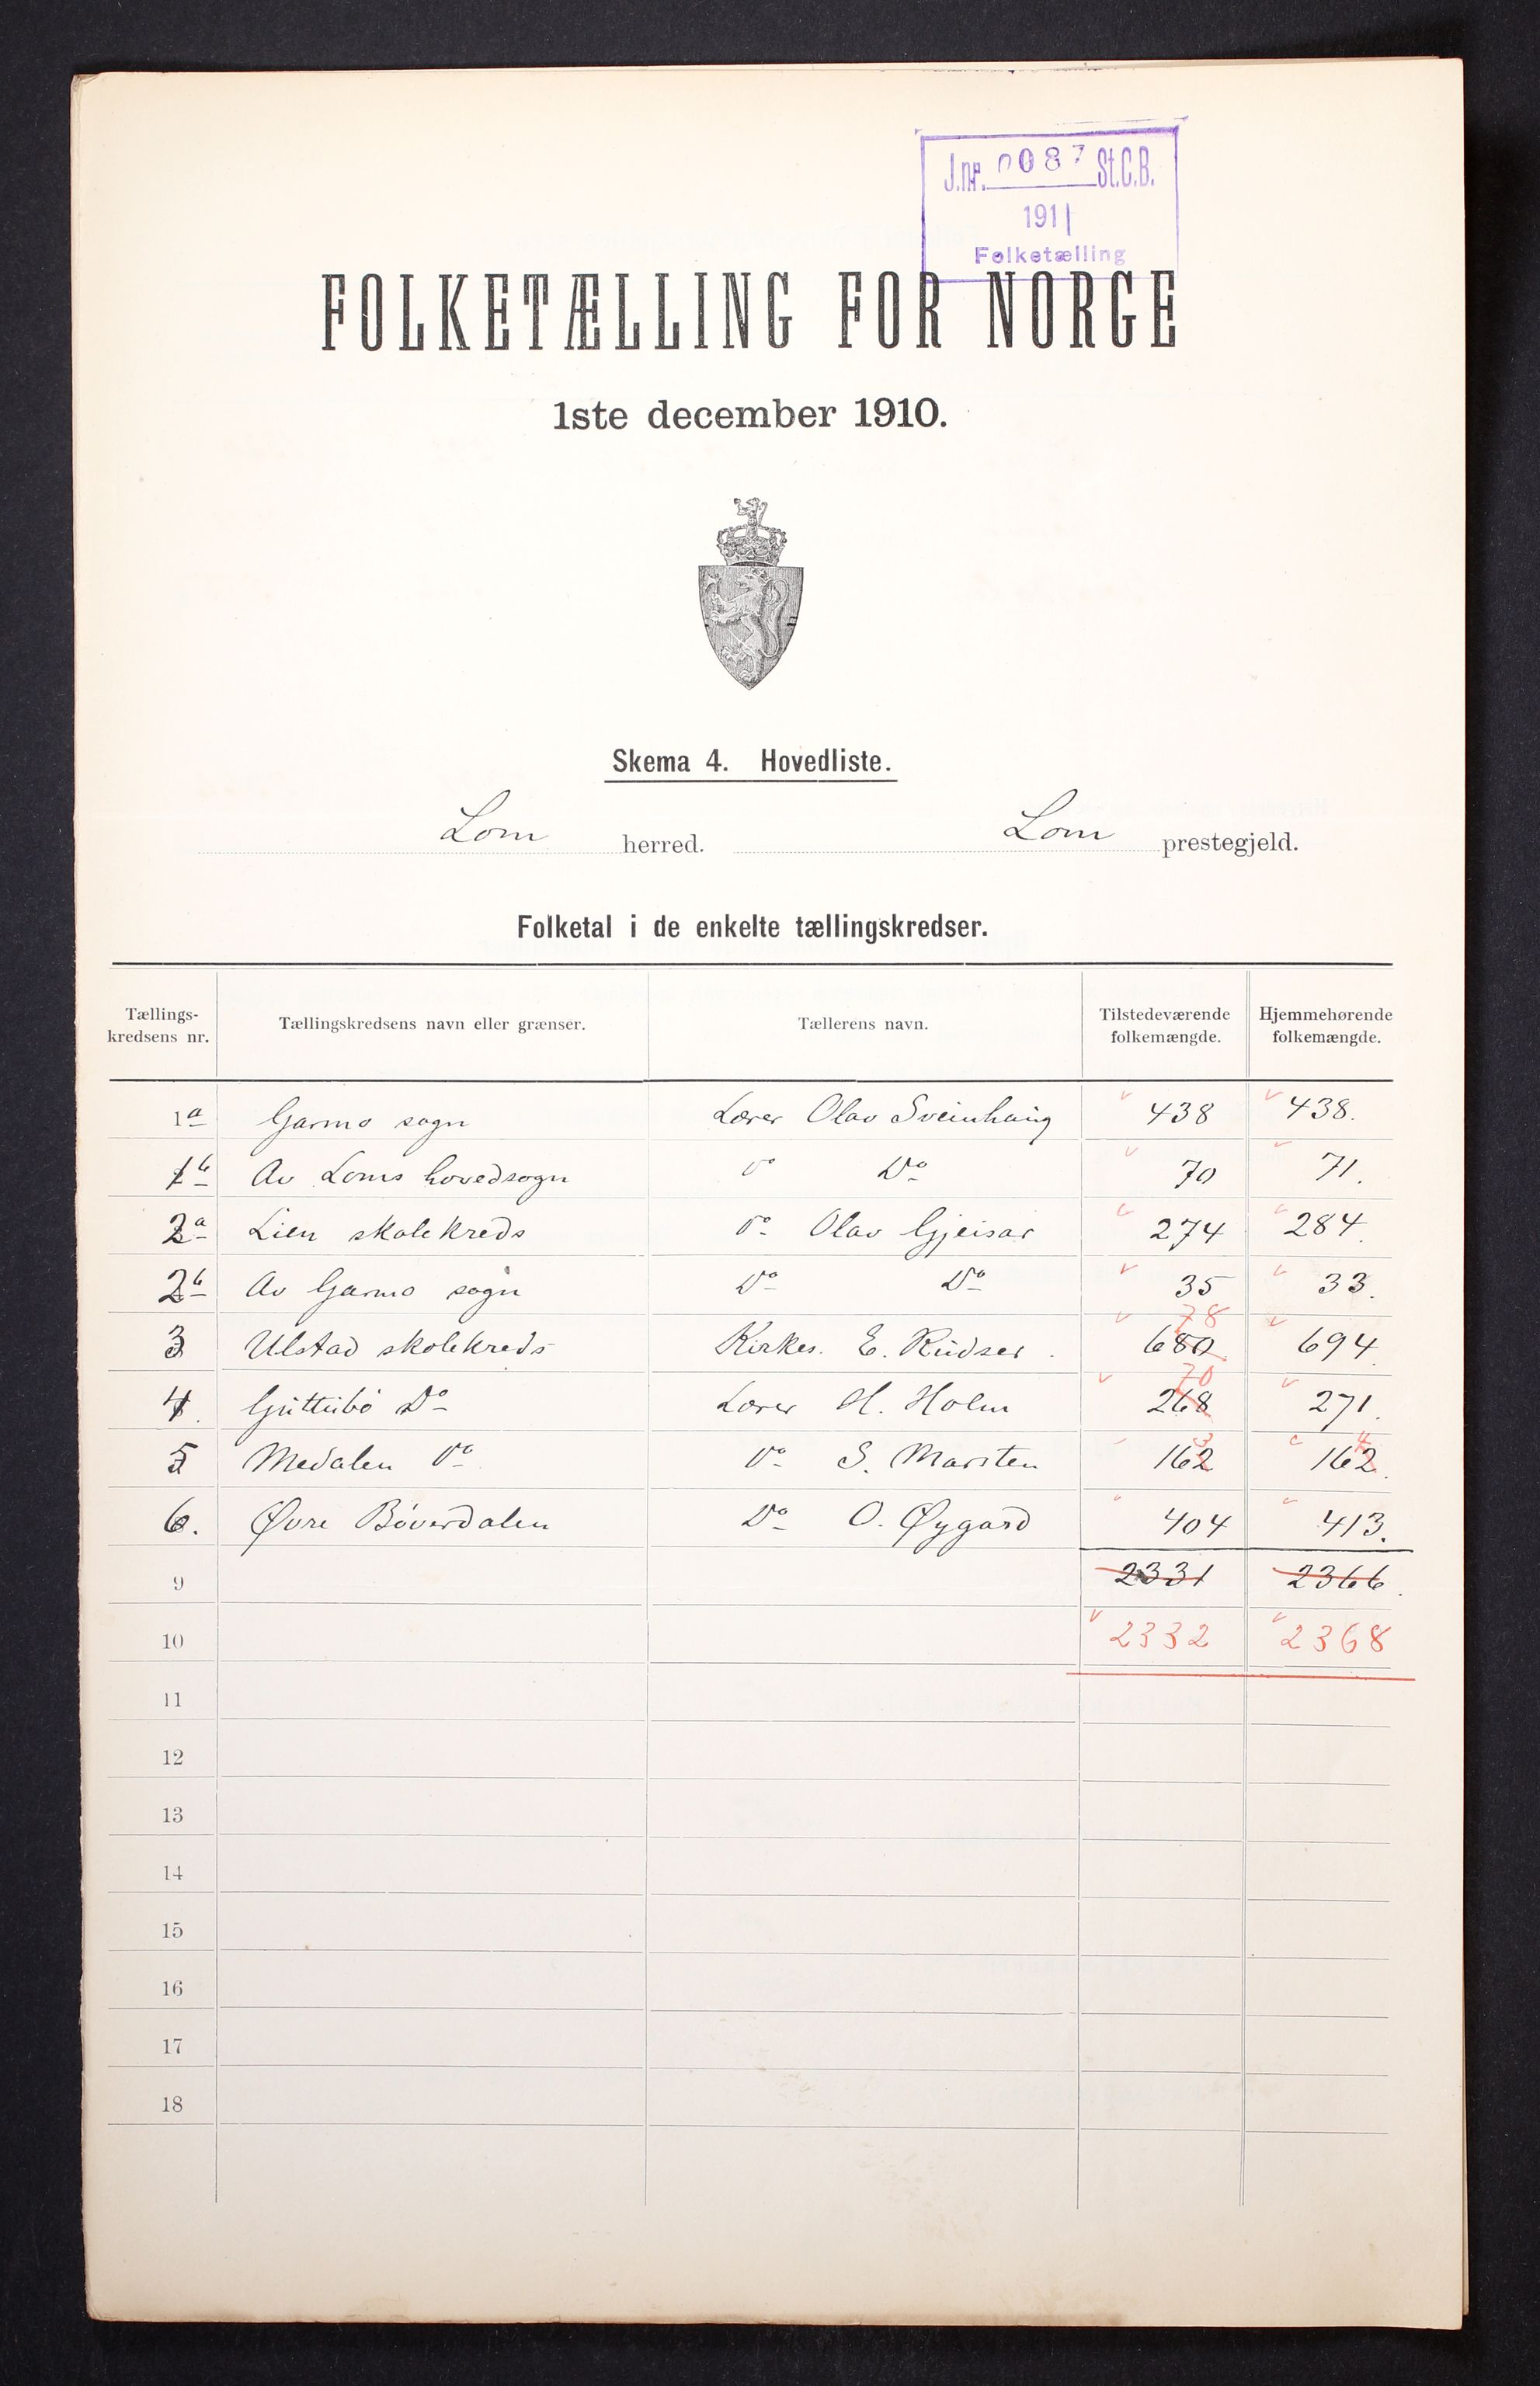 J.nr. 0087 St.C.B.
1911
Folketælling
FOLKETÆLLING FOR NORGE
1ste december 1910.
Skema 4. Hovedliste.
Lom herred. Lom prestegjeld.
Folketal i de enkelte tællingskredser.
Tællings-kredsens nr. Tællingskredsens navn eller grænser. Tællerens navn. Tilstedeværende folkemængde. Hjemmehørende folkemængde.
1a Garmo sogn Lærer Olav Sveinhaug 438 438.
1b Av Loms hovedsogn Do Do 70 71.
2a Lien skolekreds Do Olav Gjeisar 274 284.
2b Av Garmo sogn Do Do 35 33.
78
3 Ulstad skolekreds Kirkes. E. 680 694.
70
4. Do Lærer H. Holm 268 271.
3 4
5 Medalen Do Do S. Marsten 162 162.
6. Øvre Bøverdalen Do O. Øygard 404 413.
9 2331 2366.
10 2332 2368
11
12
13
14
15
16
17
18